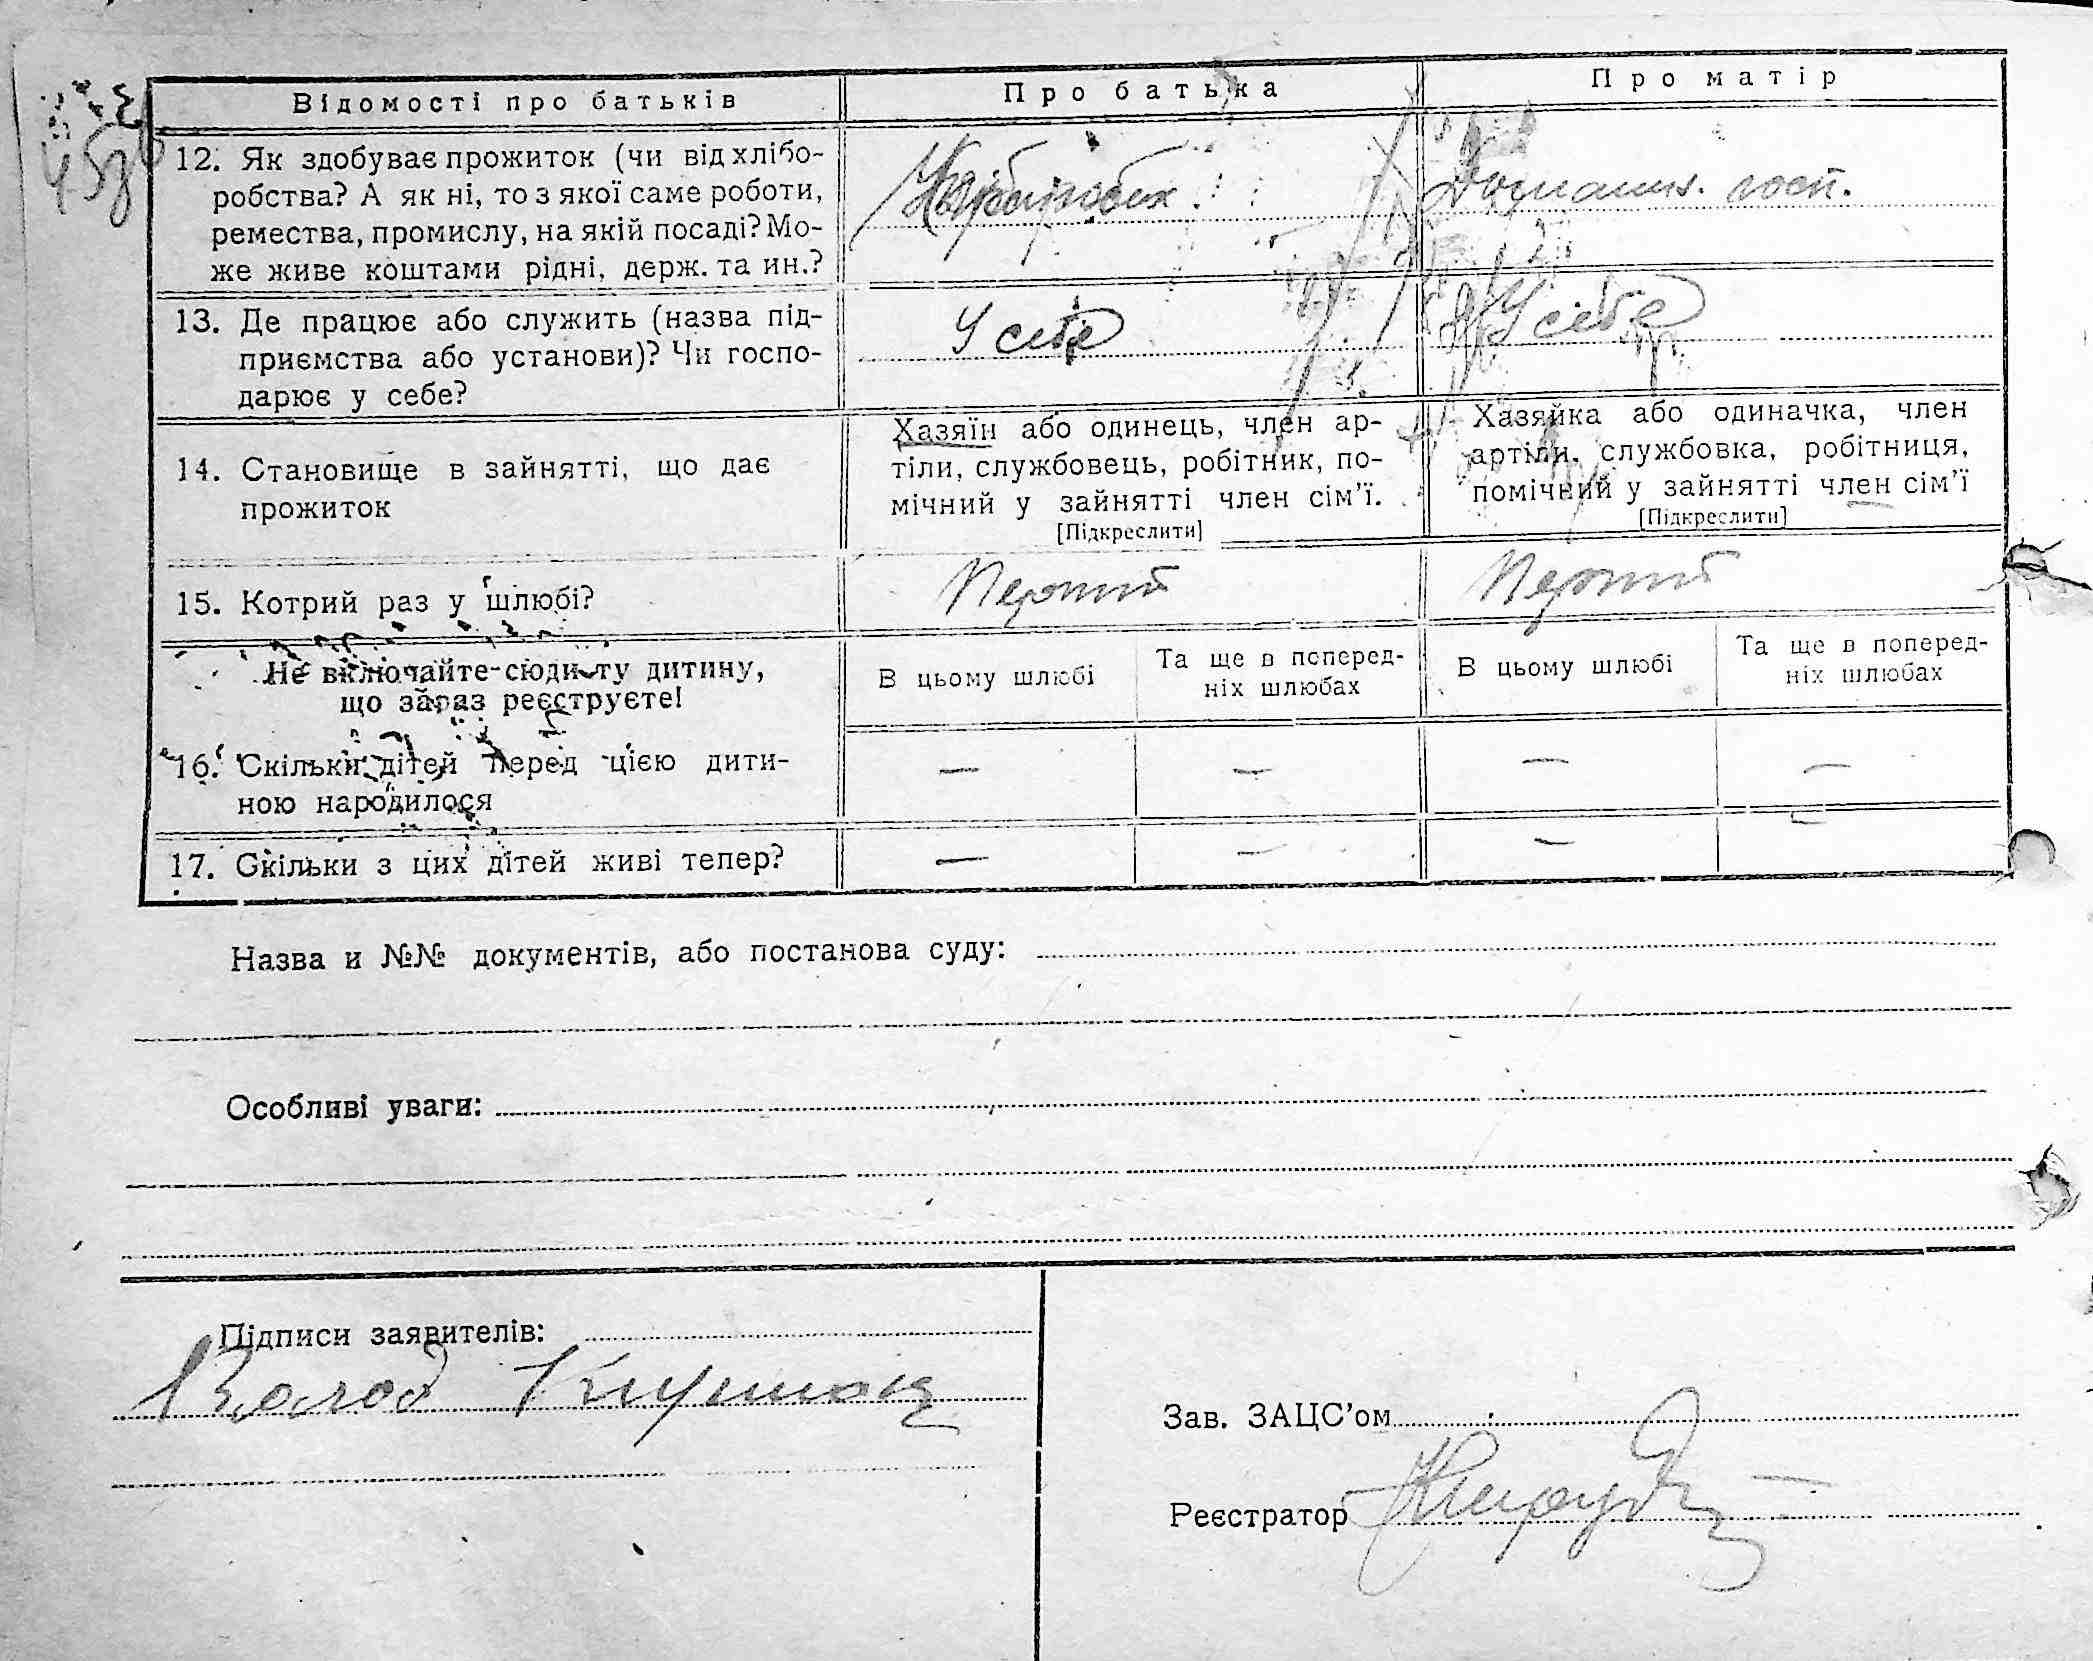 Відомості про батьків
Про батька
Про матір
12. Як здобуває прожиток (чи від хлібо-
робства? А як ні, то з якої саме роботи,
ремества, промислу, на якій посаді? Мо-
же живе коштами рідні, держ. та ин.?
Домашн. госп.
13. Де працює або служить (назва під-
приємства або установи)? Чи госпо-
дарює у себе?
У себе
У себе
14. Становище в зайнятті, що дає
прожиток
Хазяїн або одинець, член ар-
тіли, службовець, робітник, по-
мічний у зайнятті член сім'ї.
[Підкреслити]
Хазяйка або одиначка, член
артіли, службовка, робітниця,
помічний у зайнятті член сім'ї
[Підкреслити]
15. Котрий раз у шлюбі?
Перший
Перший
Не включайте сюди ту дитину,
що зараз реєструєте!
В цьому шлюбі
Та ще в поперед-
ніх шлюбах
В цьому шлюбі
Та ще в поперед-
ніх шлюбах
16. Скільки дітей перед цією дити-
ною народилося
— — — —
17. Скільки з цих дітей живі тепер?
— — — —
Назва и №№ документів, або постанова суду:
Особливі уваги:
Підписи заявителів:
Волод
Зав. ЗАЦС'ом
Реєстратор